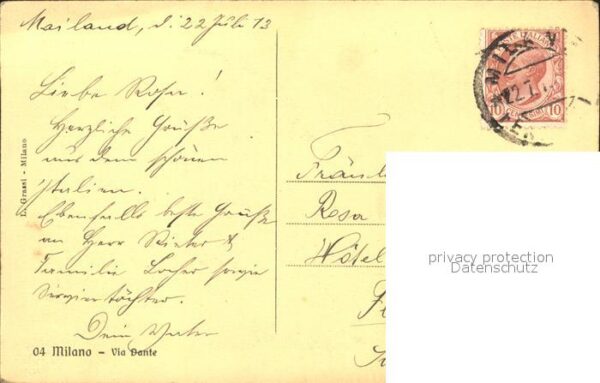 Mailand, d. 22 Juli 13
Liebe Rosa!
Herzliche Grüße
aus dem schönen
Italien.
Ebenfalls beste Grüße
an Herr Rieter &
Familie Locher sowie
Serviertöchter.
Dein Vater
Fräul
Rosa
Hôtel
POSTE ITALIANE
10
10
MILANO
22.7
D. Grassi - Milano
04 Milano - Via Dante
privacy protection
Datenschutz